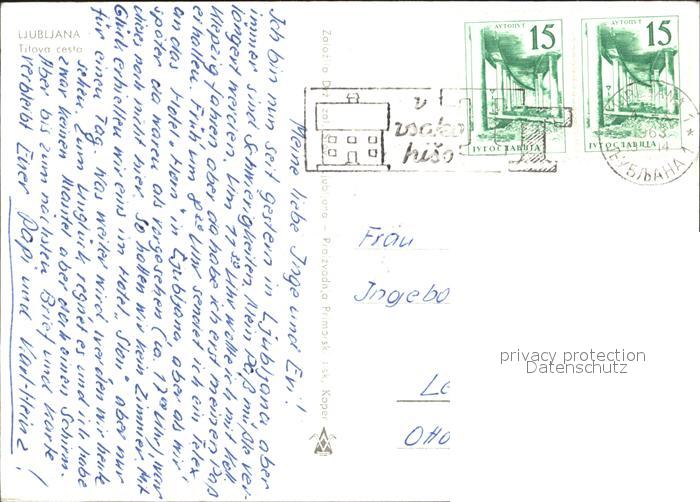 LJUBLJANA
Titova cesta
Meine liebe Inge und Ev!
Ich bin nun seit gestern in Ljubljana aber
immer sind Schwierigkeiten. Mein Paß mußte ver-
längert werden. Um 11 30 Uhr wollte ich mit Koll.
fahren, aber da habe ich erst meinen Paß
erhalten. Früh um Uhr sendet ich ein Telex
an das Hotel "Lion" in Ljubljana aber als wir
später da waren als vorgesehen (ca 17 00 Uhr), war
dies noch nicht hier. So hatten wir kein Zimmer. Mit
Glück erhielten wir eins im Hotel "Slon" aber nur
für einen Tag. Was weiter wird werden wir heute
sehen. Zum Unglück regnet es und ich habe
zwar keinen Mantel aber doch einen Schirm.
Aber bis zum nächsten Brief und Karte
verbleibt Euer Papi und Karl-Heinz!
Ljubljana – Proizvodnja Primorski tisk, Koper
АУТОПУТ 15
ЈУГОСЛАВИЈА
АУТОПУТ 15
ЈУГОСЛАВИЈА
v
vsako
hišo
1963
14
ЉУБЉАНА 1
Frau
Ingebo
Le
Otto
privacy protection
Datenschutz